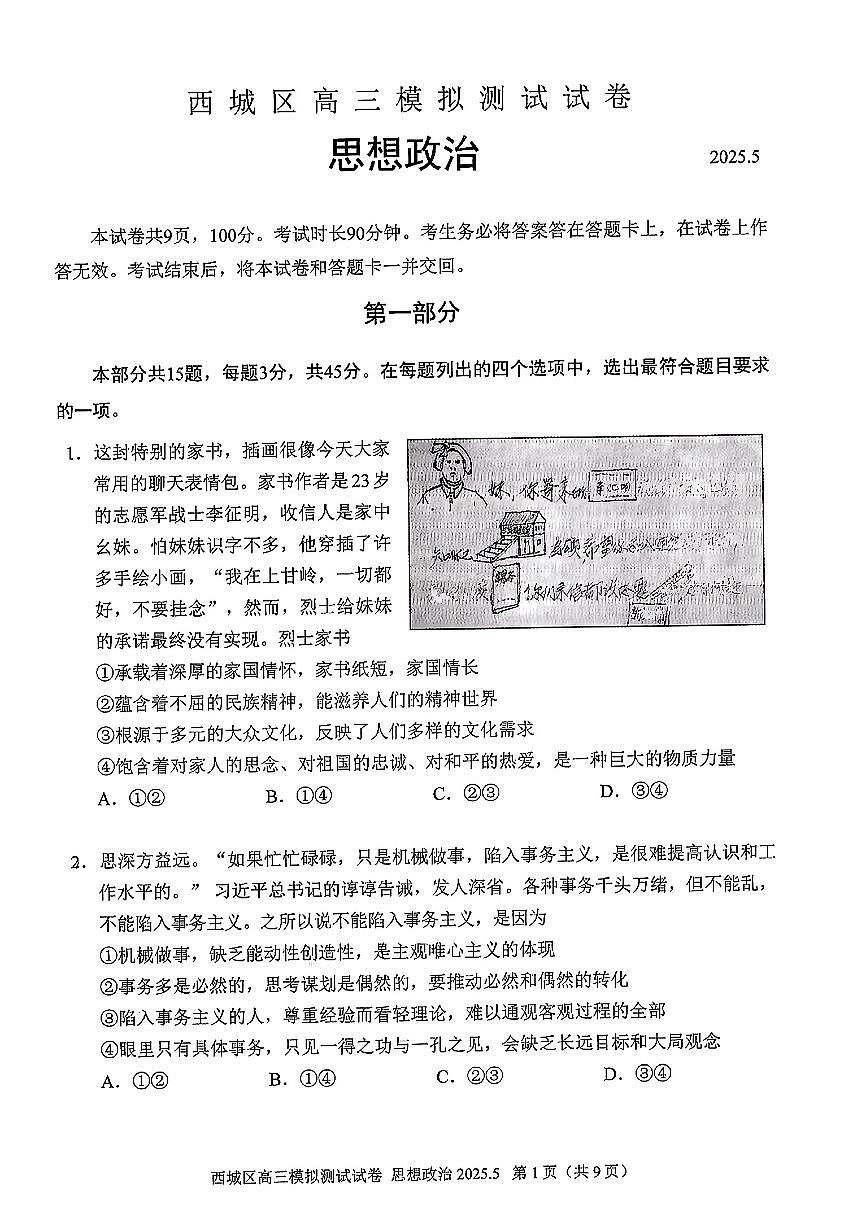 西城区高三模拟测试试卷
思想政治
2025.5
本试卷共9页，100分。考试时长90分钟。考生务必将答案答在答题卡上，在试卷上作
答无效。考试结束后，将本试卷和答题卡一并交回。
第一部分
本部分共15题，每题3分，共45分。在每题列出的四个选项中，选出最符合题目要求
的一项。
1．这封特别的家书，插画很像今天大家
常用的聊天表情包。家书作者是23岁
的志愿军战士李征明，收信人是家中
幺妹。怕妹妹识字不多，他穿插了许
多手绘小画，“我在上甘岭，一切都
好，不要挂念”，然而，烈士给妹妹
的承诺最终没有实现。烈士家书
妹，你等来的
①承载着深厚的家国情怀，家书纸短，家国情长
②蕴含着不屈的民族精神，能滋养人们的精神世界
③根源于多元的大众文化，反映了人们多样的文化需求
④饱含着对家人的思念、对祖国的忠诚、对和平的热爱，是一种巨大的物质力量
A．①② B．①④ C．②③ D．③④
2．思深方益远。“如果忙忙碌碌，只是机械做事，陷入事务主义，是很难提高认识和工
作水平的。” 习近平总书记的谆谆告诫，发人深省。各种事务千头万绪，但不能乱，
不能陷入事务主义。之所以说不能陷入事务主义，是因为
①机械做事，缺乏能动性创造性，是主观唯心主义的体现
②事务多是必然的，思考谋划是偶然的，要推动必然和偶然的转化
③陷入事务主义的人，尊重经验而看轻理论，难以通观客观过程的全部
④眼里只有具体事务，只见一得之功与一孔之见，会缺乏长远目标和大局观念
A．①② B．①④ C．②③ D．③④
西城区高三模拟测试试卷 思想政治 2025.5 第1页（共9页）